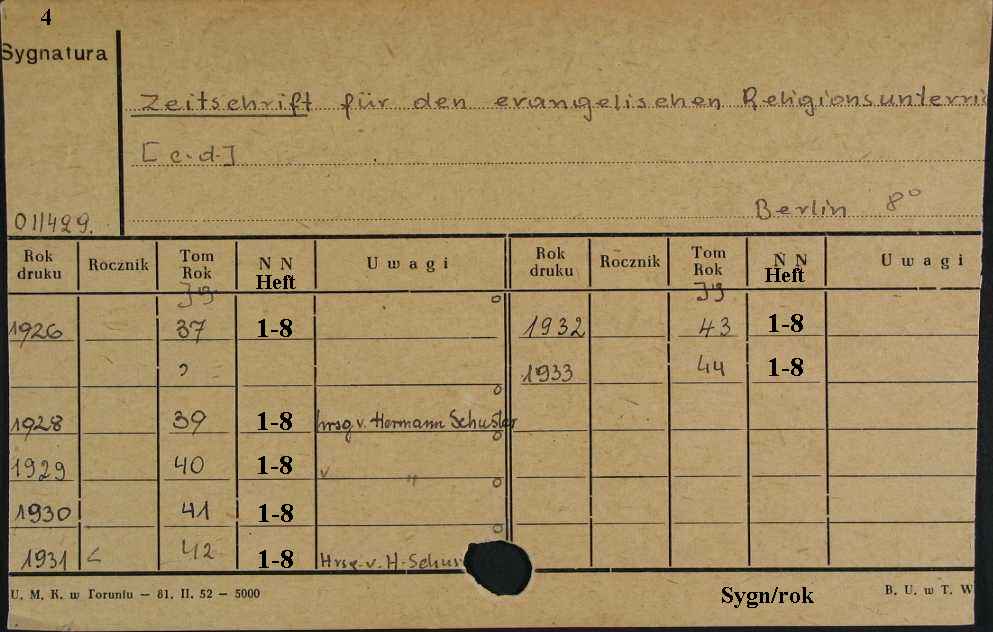 4
Sygnatura
Zeitschrift für den evangelischen Religionsunterri
[c.d.]
Berlin 8°
011429.
Rok druku Rocznik Tom Rok N N Heft Uwagi Rok druku Rocznik Tom Rok N N Heft Uwagi
Jg Jg
1926 37 1-8 1932 43 1-8
1933 44 1-8
1928 39 1-8 hrsg v. Hermann Schuster
1929 40 1-8 v "
1930 41 1-8
1931 < 42 1-8 Hrsg. v. H. Schus
U. M. K. w Toruniu – 81. II. 52 – 5000 Sygn/rok B. U. w T. W